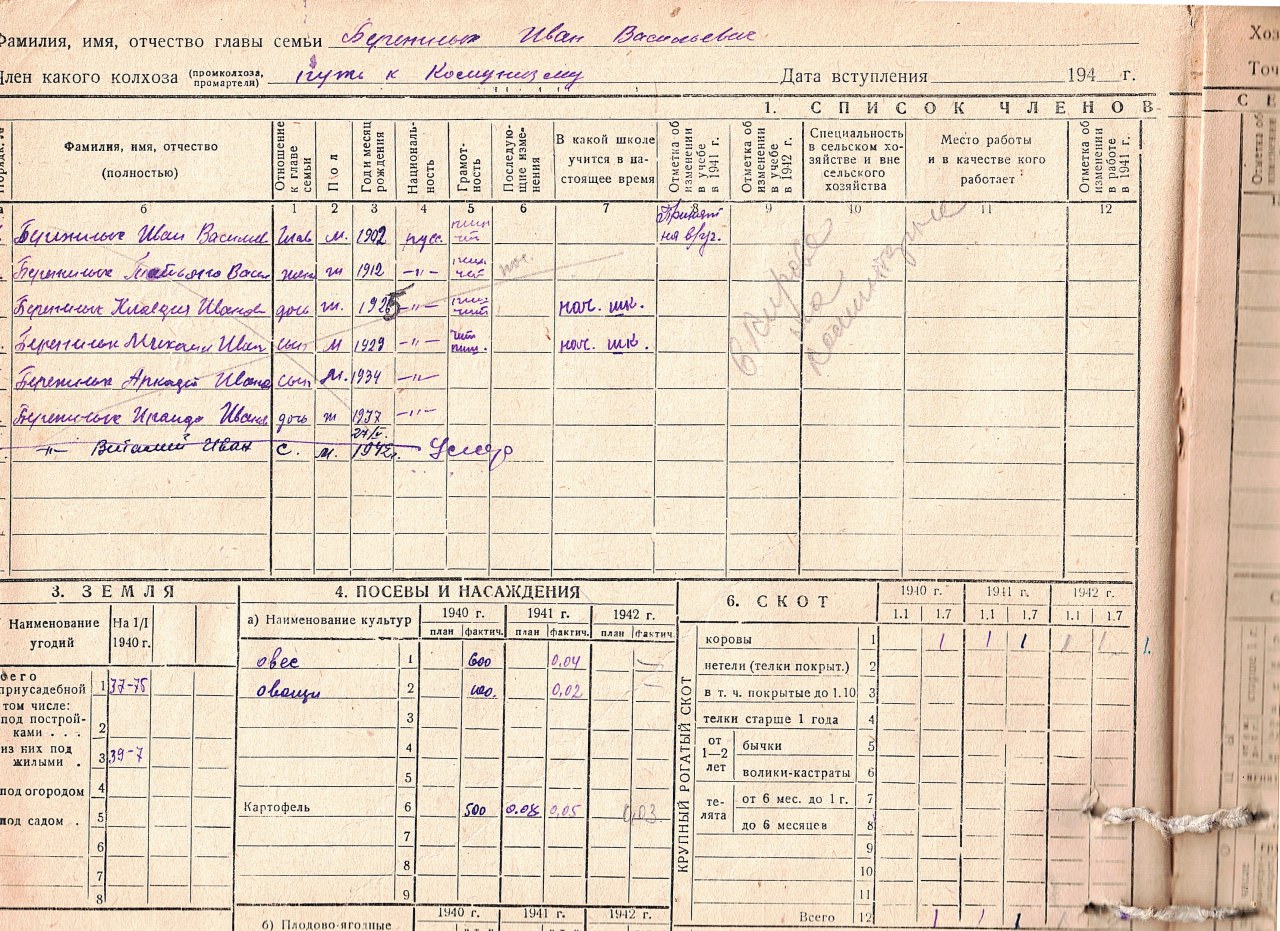 Фамилия, имя, отчество главы семьи Бережных Иван Васильевич
Член какого колхоза (промколхоза, промартели) путь к Комунизму Дата вступления 194 г.
1. СПИСОК ЧЛЕНОВ
Порядк. № Фамилия, имя, отчество (полностью) Отношение к главе семьи Пол Год и месяц рождения Националь-ность Грамот-ность Последую-щие изме-нения В какой школе учится в на-стоящее время Отметка об изменении в учебе в 1941 г. Отметка об изменении в учебе в 1942 г. Специальность в сельском хо-зяйстве и вне сельского хозяйства Место работы и в качестве кого работает Отметка об изменении в работе в 1941 г.
а б 1 2 3 4 5 6 7 8 9 10 11 12
Бережных Иван Василев глав м. 1902 русс. на в/уч.
Бережных Татьяна Васил жен ж 1912 -"-
Бережных Клавдия Иванов дочь ж. 1925 -"- нач. шк.
Бережных Михаил Иван сын м 1929 -"- чит пиш. нач. шк.
Бережных Аркадий Ивано сын м. 1934 -"-
Бережных Ираида Иванов дочь ж 1937 -"-
-"- Виталий Иван с. м. 1942г. Умер
в Кирове на
3. ЗЕМЛЯ
Наименование угодий На 1/I 1940 г.
Всего приусадебной 1 37-75
том числе:
под построй-ками . . . 2
из них под жилыми . 3 39-7
под огородом 4
под садом . 5
6
7
8
4. ПОСЕВЫ И НАСАЖДЕНИЯ
а) Наименование культур 1940 г. 1941 г. 1942 г.
план фактич. план фактич. план фактич.
овес 1 600 0,04
овощи 2 100. 0,02
3
4
5
Картофель 6 500 0.08 0,05 0,03
7
8
9
1940 г. 1941 г. 1942 г.
б) Плодово-ягодные
6. СКОТ 1940 г. 1941 г. 1942 г.
1.1 1.7 1.1 1.7 1.1 1.7
КРУПНЫЙ РОГАТЫЙ СКОТ
коровы 1 1 1 1 1 1 1.
нетели (телки покрыт.) 2
в т. ч. покрытые до 1.10 3
телки старше 1 года 4
от 1—2 лет бычки 5
волики-кастраты 6
те-лята от 6 мес. до 1 г. 7
до 6 месяцев 8
9
10
11
Всего 12 1 1 1
Хоз
Точ